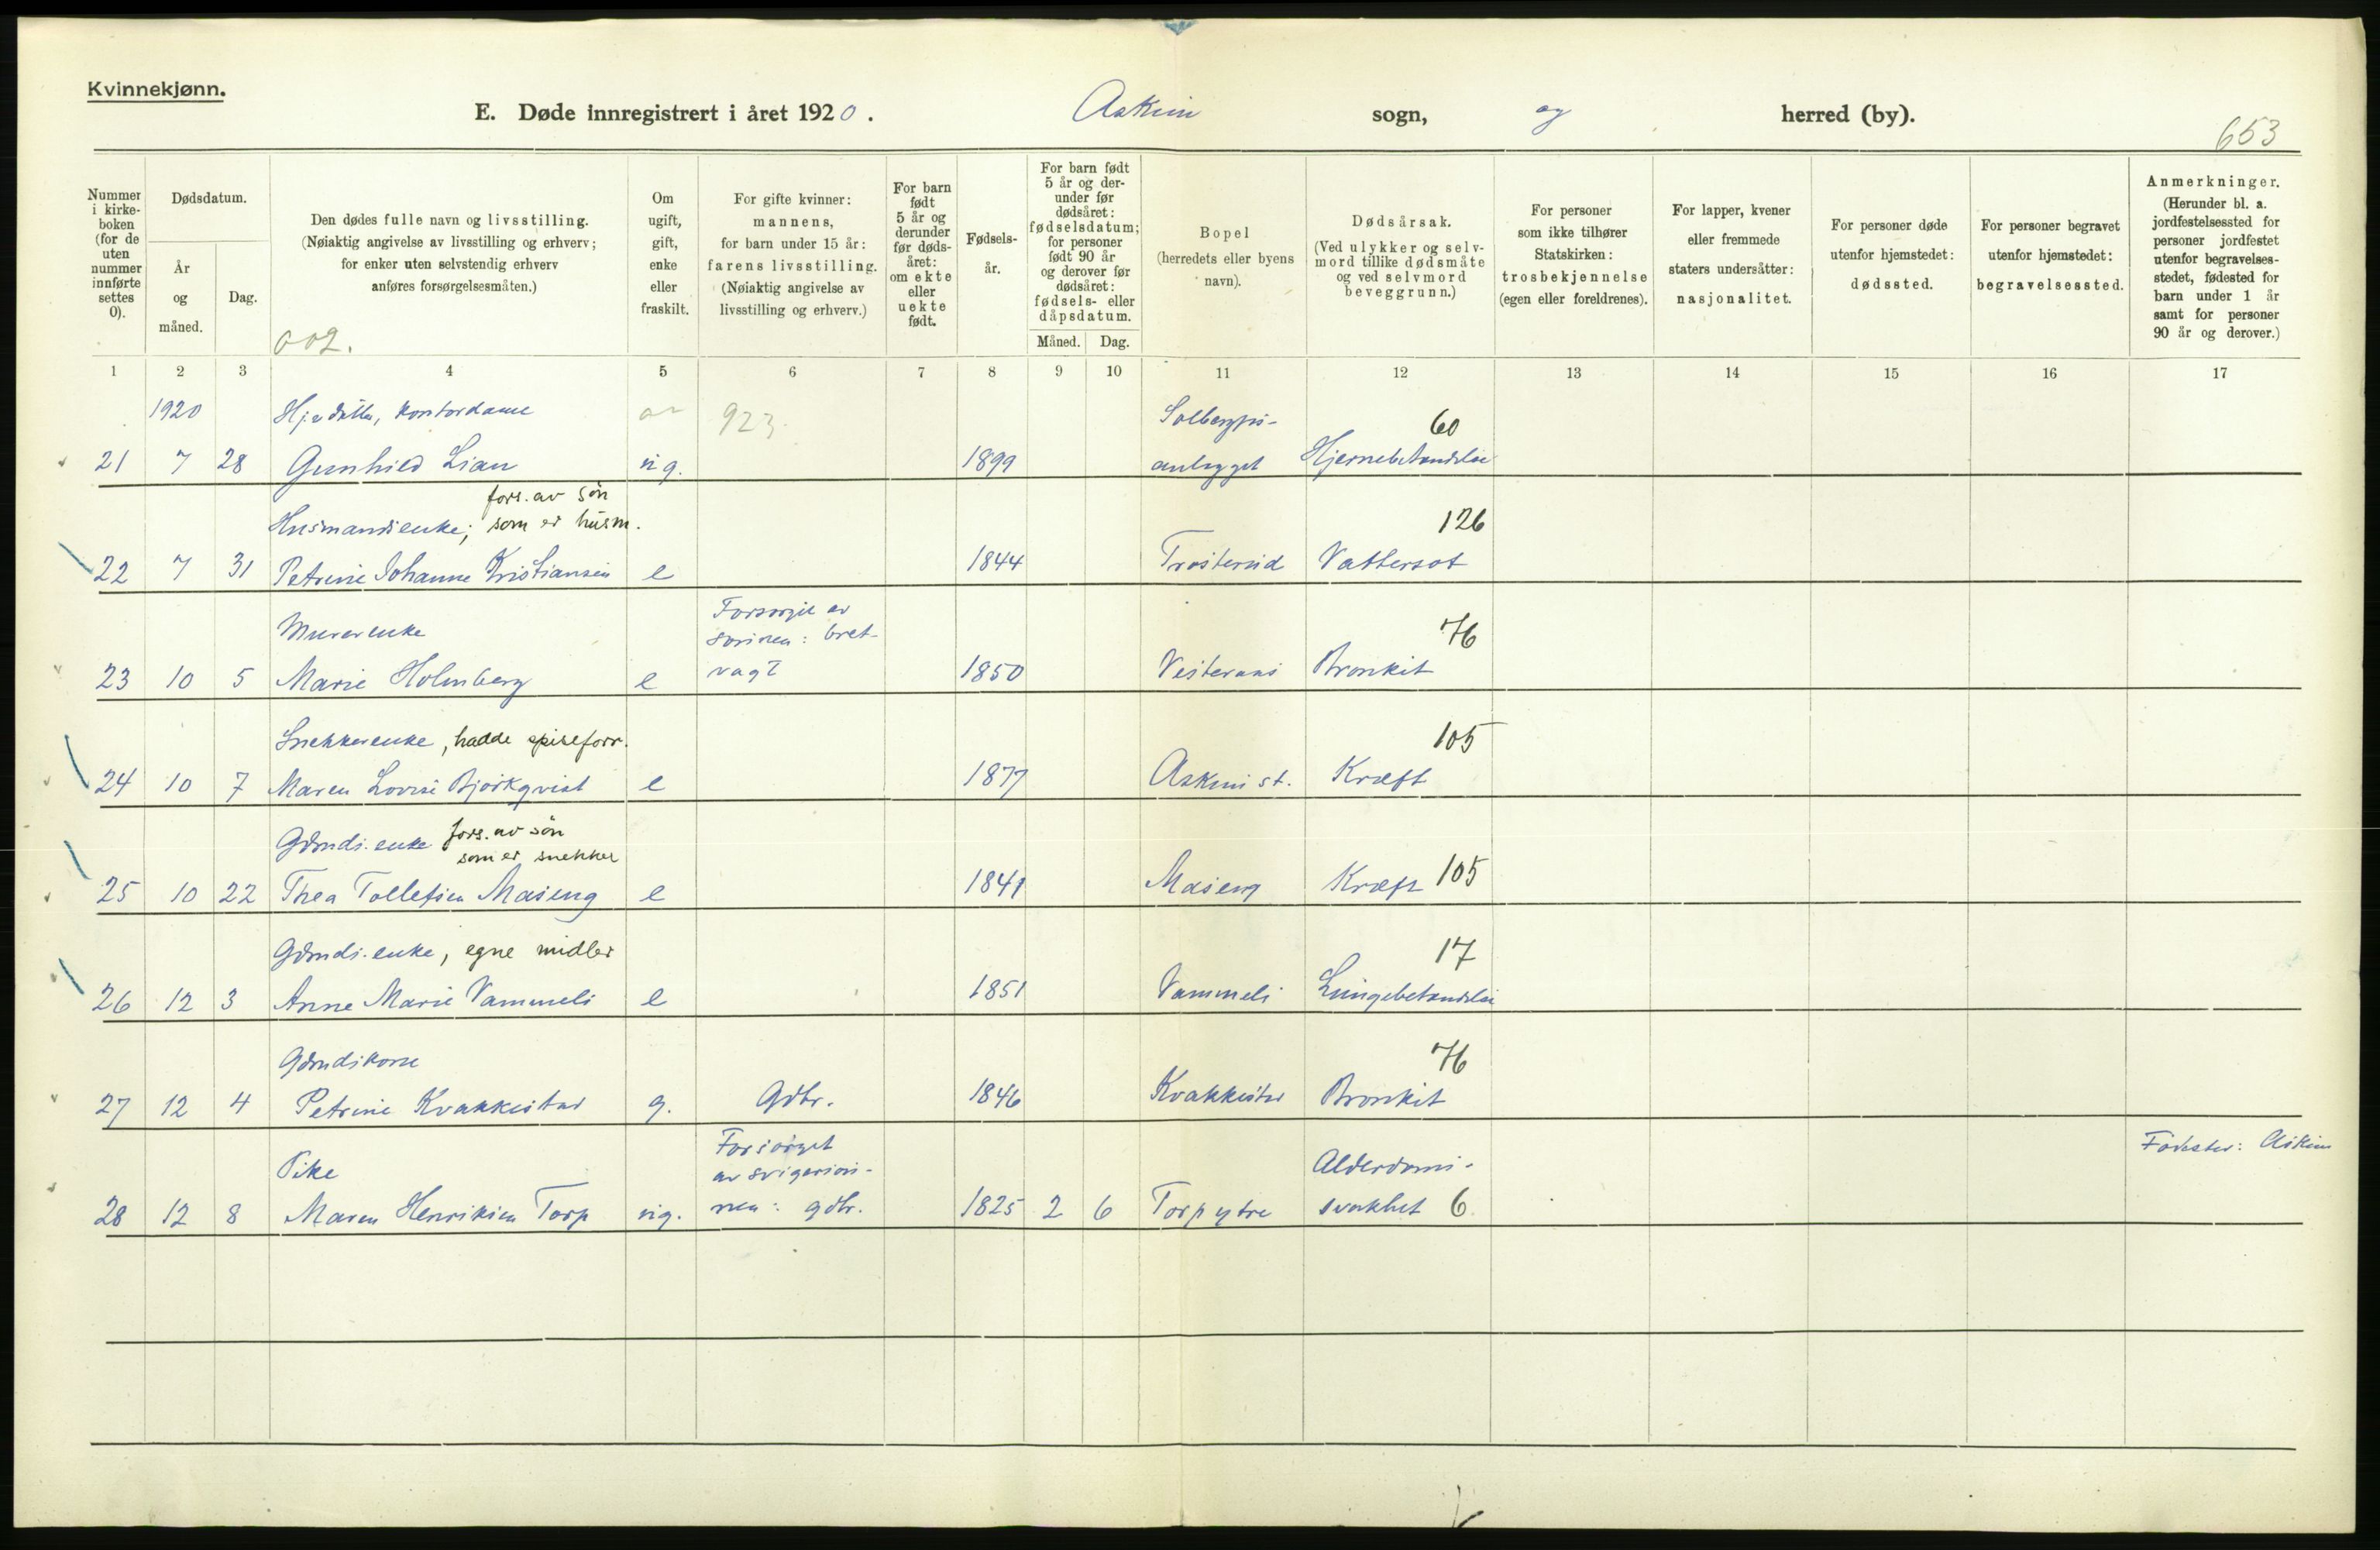 Kvinnekjønn.
E. Døde innregistrert i året 1920. Askim sogn, og herred (by).
653
Nummer i kirke-boken (for de uten nummer innførte settes 0).
Dødsdatum.
År og måned.
Dag.
Den dødes fulle navn og livsstilling.
(Nøiaktig angivelse av livsstilling og erhverv;
for enker uten selvstendig erhverv
anføres forsørgelsesmåten.)
002.
Om ugift, gift, enke eller fraskilt.
For gifte kvinner:
mannens,
for barn under 15 år:
farens livsstilling.
(Nøiaktig angivelse av
livsstilling og erhverv.)
For barn født 5 år og derunder før døds-året: om ekte eller uekte født.
Fødsels-år.
For barn født 5 år og der-under før dødsåret: fødselsdatum; for personer født 90 år og derover før dødsåret: fødsels- eller dåpsdatum.
Måned. Dag.
Bopel
(herredets eller byens
navn).
Dødsårsak.
(Ved ulykker og selv-
mord tillike dødsmåte
og ved selvmord
beveggrunn.)
For personer
som ikke tilhører
Statskirken:
trosbekjennelse
(egen eller foreldrenes).
For lapper, kvener
eller fremmede
staters undersåtter:
nasjonalitet.
For personer døde
utenfor hjemstedet:
dødssted.
For personer begravet
utenfor hjemstedet:
begravelsessted.
Anmerkninger.
(Herunder bl. a.
jordfestelsessted for
personer jordfestet
utenfor begravelses-
stedet, fødested for
barn under 1 år
samt for personer
90 år og derover.)
1 2 3 4 5 6 7 8 9 10 11 12 13 14 15 16 17
1920 kontordame 923 Solbergfos- 60
21 7 28 Gunhild Lian ug. 1899 anlegget Hjernebetændelse
fors. av søn
Husmandsenke; som er husm. 126
22 7 31 Petrine Johanne Kristiansen e 1844 Trøsterud Vattersot
Murerenke Forsørget av sønnen: bret- 76
23 10 5 Marie Holmberg e vagt 1850 Vesteraas Bronkit
Snekkerenke, hadde spiseforr. 105
24 10 7 Maren Lovise Bjørkqvist e 1877 Askim st. Kræft
Gdmds. enke fors. av søn
som er snekker
25 10 22 Thea Tollefsen Maseng e 1841 Maseng Kræft 105
Gdmds. enke, egne midler 17
26 12 3 Anne Marie Vammeli e 1851 Vammeli Lungebetændelse
Gdmdskone 76
27 12 4 Petrine Kvakkestad g. Gdbr. 1846 Kvakkestad Bronkit
Pike Forsørget av svigersøn- Alderdoms- Fødested: Askim
28 12 8 Maren Henriksen Torp ug. nen: gdbr. 1825 2 6 Torp ytre svakhet 6